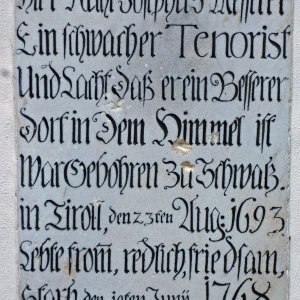 Hier Ruht Josephus Messerer
Ein schwacher Tenorist
Und Lacht Daß er ein Besserer
Dort in Dem Himmel ist
War Gebohren Zu Schwaß.
in Tiroll, den 23ten Aug: 1693
Lebte from, redlich, friedsam,
Starb den 10ten Junÿ 1768